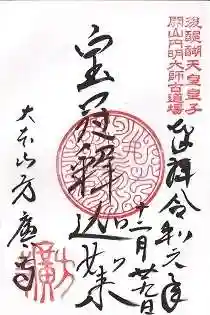 後醍醐天皇皇子
開山円明大師古道場
奉拝 令和六年
十二月廿九日
宝冠釋迦如来
大本山方廣寺